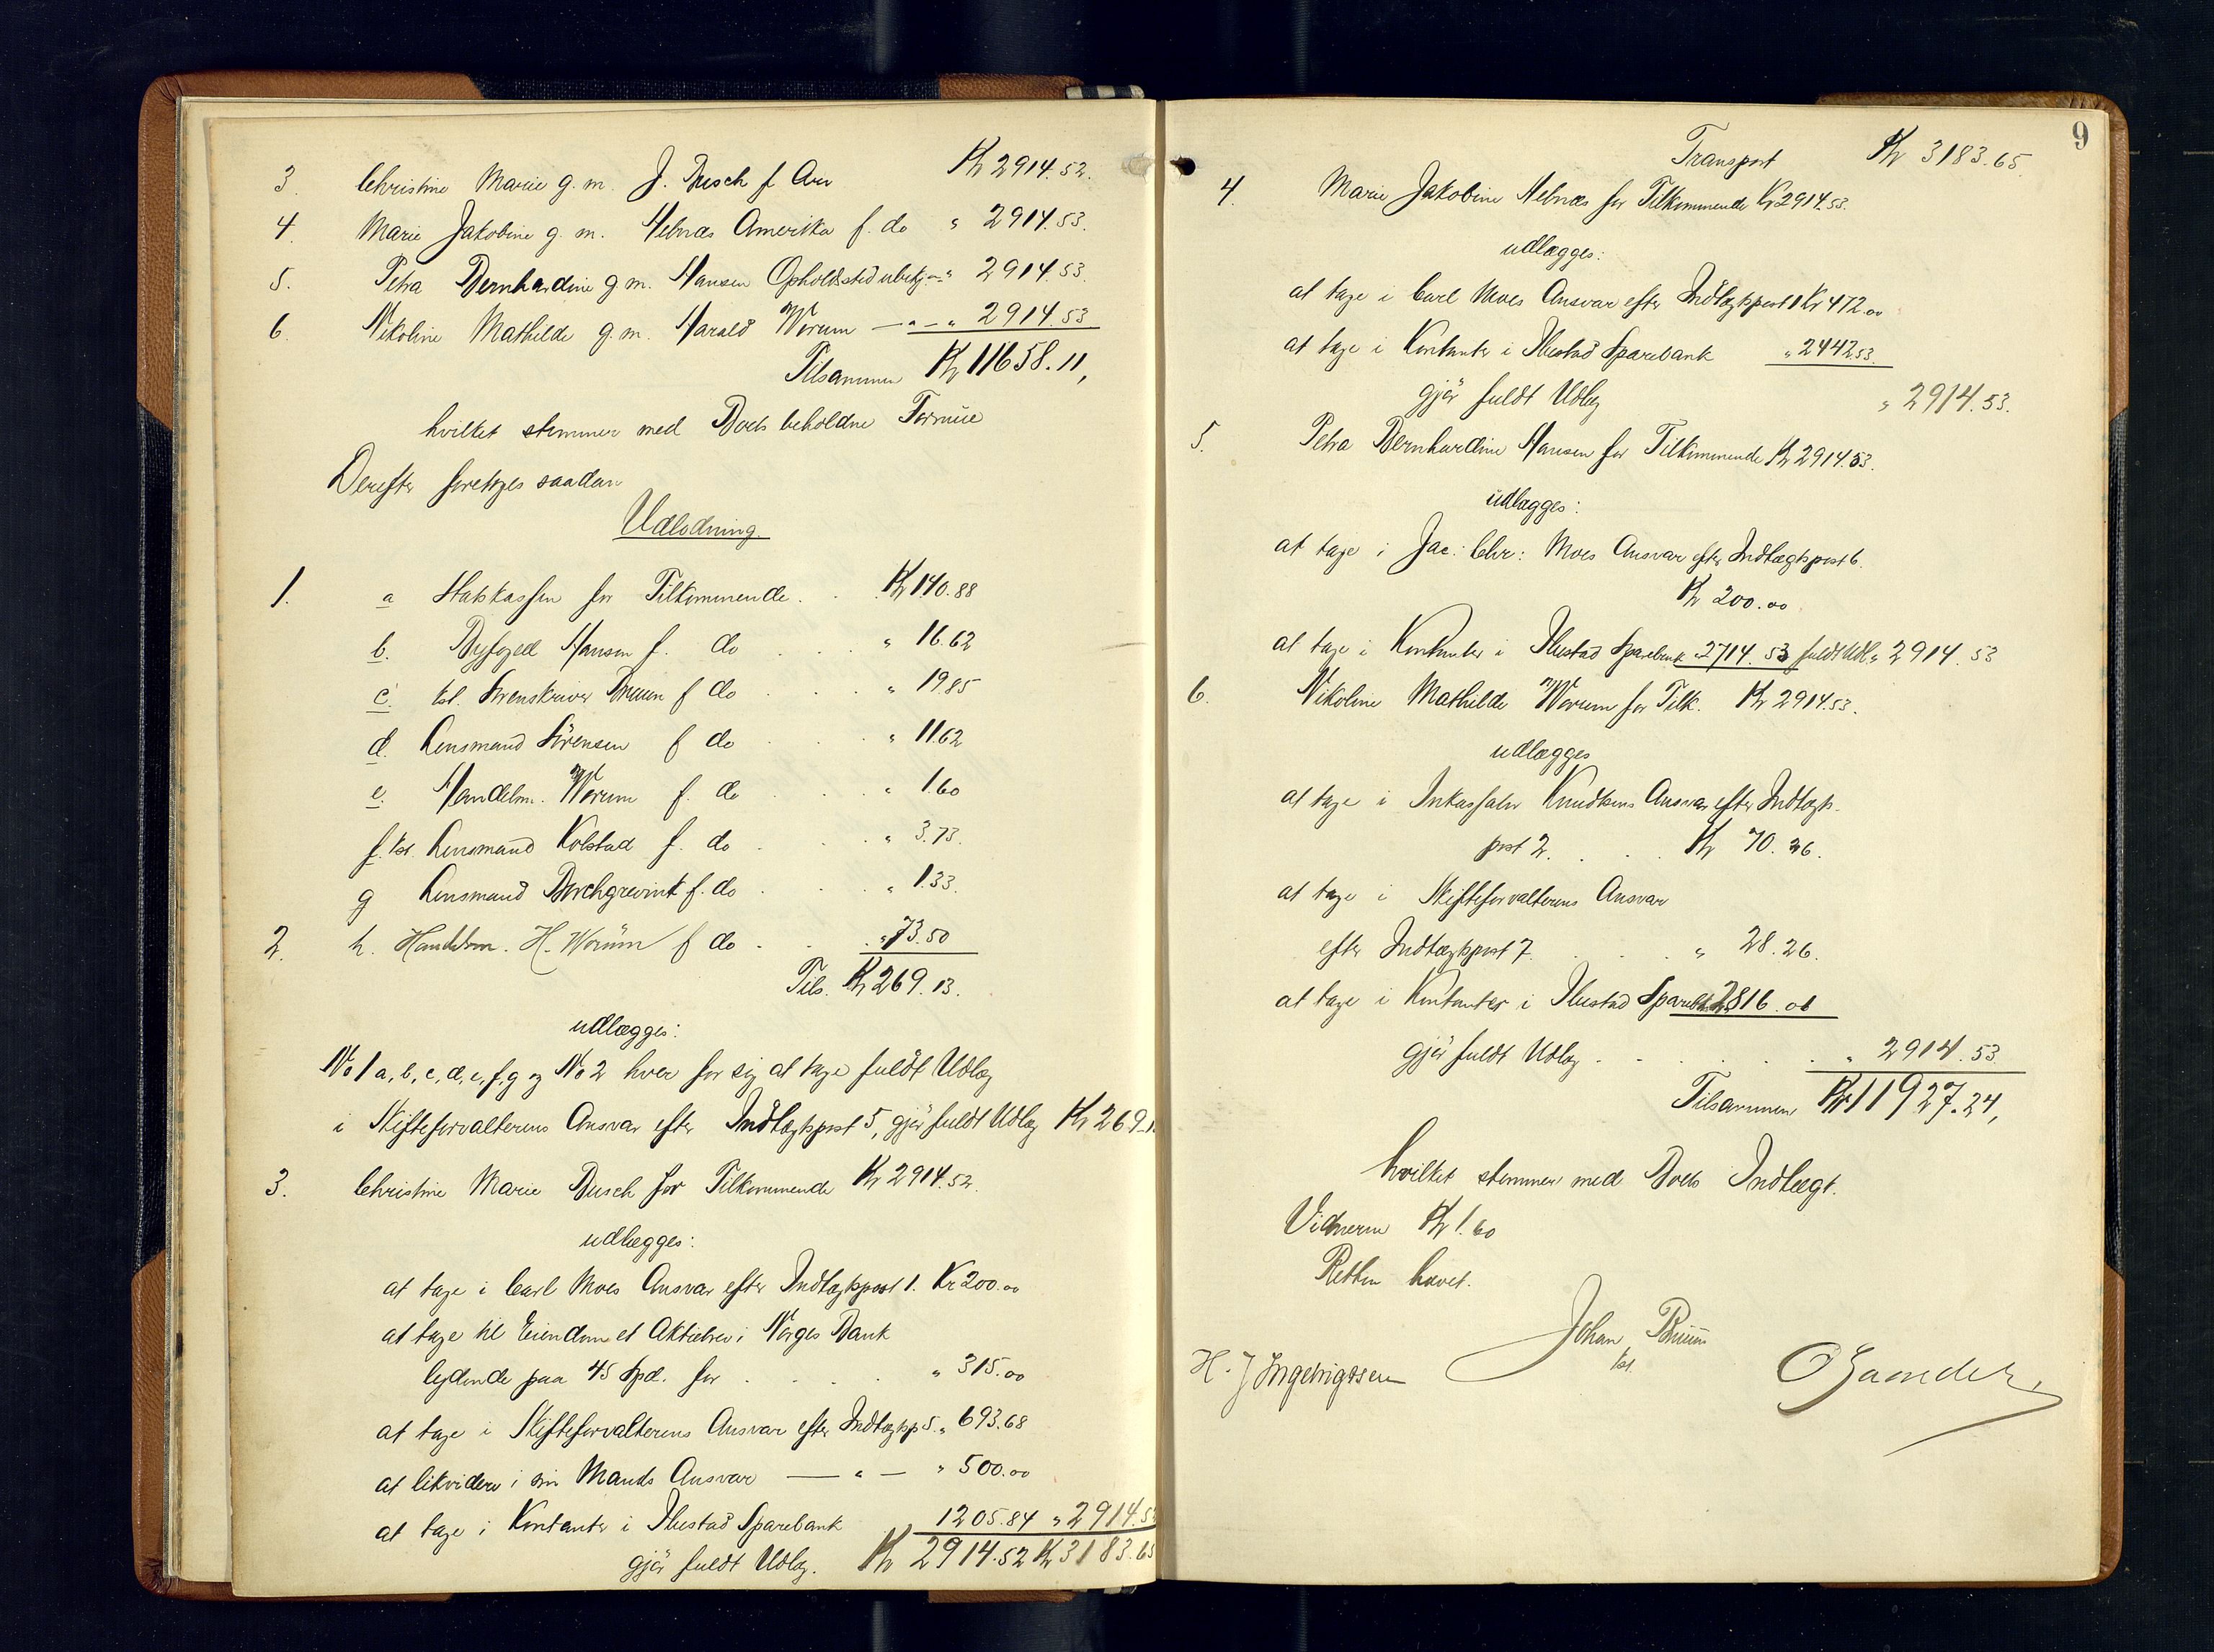 3. Christine Marie g. m. J. Busch f Arv Kr 2914.52.
4. Marie Jakobine g. m. Nelnæs Amerika f. do " 2914.53.
5. Petra Bernhardine g. m. Hansen Opholdssted ubekj. — " 2914.53.
6. Nikoline Mathilde g. m. Harald Worum — " — " 2914.53
Tilsammen Kr 11658.11,
hvilket stemmer med Boets beholdne Formue
Derefter foretoges saadan
Udlodning.
1. a Statskassen for Tilkommende . . Kr 140.88
b. Byfoged Hansen f. do . . . " 16.62
c. kst. Sorenskriver Bruun f do . . . " 19.85
d. Lensmand Sörensen f do . . . " 11.62
e. Handelsm. Worum f. do . . . " 1.60
f. kst. Lensmand Kolstad f. do . . . " 3.73.
g Lensmand Borchgrevink f. do . . . " 1.33.
2. h. Handelsm. H. Worum f do . . . " 73.50
Tils. Kr 269.13.
udlægges:
No 1 a, b, c, d, e, f, g og No 2 hver for sig at tage fuldt Udlæg
i Skifteforvalterens Ansvar efter Indtægtspost 5, gjør fuldt Udlæg Kr 269.1
3. Christine Marie Busch for Tilkommende Kr 2914.52.
udlægges:
at tage i Carl Moes Ansvar efter Indtægtspost 1. Kr 200.00
at tage til Eiendom et Aktiebrev i Norges Bank
lydende paa 45 Spd. for . . . . " 315.00
at tage i Skifteforvalterens Ansvar efter Indtægtsp 5. " 693.68
at likvidere i sin Mands Ansvar — " — " 500.00
at tage i Kontanter i Ilustad Sparebank 1205.84 " 2914.5
gjør fuldt Udlæg. Kr 2914.52 Kr 3183.65
9
Transport Kr 3183.65.
4. Marie Jakobine Nelnæs for Tilkommende Kr 2914.53.
udlægges:
at tage i Carl Moes Ansvar efter Indtægtspost 1 Kr 472.00
at tage i Kontanter i Ilustad Sparebank " 2442.53.
gjør fuldt Udlæg " 2914.53.
5. Petra Bernhardine Hansen for Tilkommende Kr 2914.53.
udlægges:
at tage i Jac: Chr: Moes Ansvar efter Indtægtspost 6.
Kr 200.00
at tage i Kontanter i Ilustad Sparebank " 2714.53 fuldt Udl. " 2914.53
6. Nikoline Mathilde Worum for Tilk. Kr 2914.53.
udlægges
at tage i Inkassator Knudtsens Ansvar efter Indtægts-
post 2. . . . Kr 70.26.
at tage i Skifteforvalterens Ansvar
efter Indtægtspost 7. . . . " 28.26.
at tage i Kontanter i Ilustad Sparebk 2816.01
gjør fuldt Udlæg . . . . . " 2914.53
Tilsammen Kr 11927.24,
hvilket stemmer med Boets Indtægt.
Vidnerne Kr 1.60
Retten hævet.
Johan Bruun
kst.
H. J Ingebrigtsen